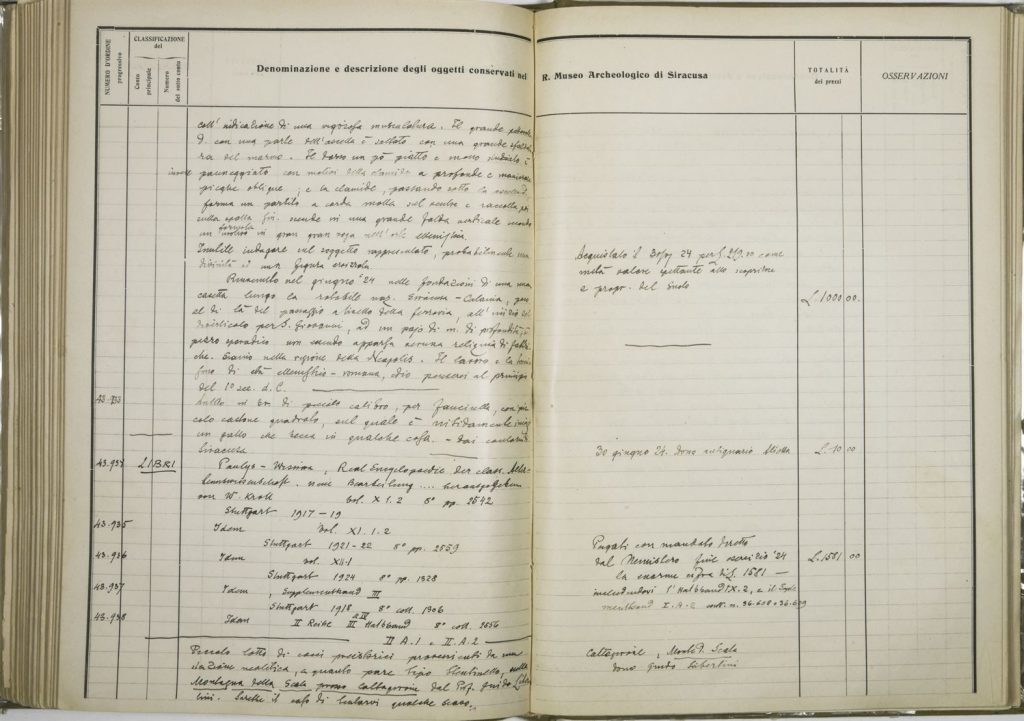 NUMERO D'ORDINE progressivo
CLASSIFICAZIONE del
Conto principale
Numero del sotto conto
Denominazione e descrizione degli oggetti conservati nel R. Museo Archeologico di Siracusa
TOTALITÀ dei prezzi
OSSERVAZIONI
coll' indicazione di una vigorosa muscolatura. Il grande
d. con una parte dell'ascella è saltato con una grande
ra del marmo. Il dorso un pò piatto e meno
paneggiato con motivi della clamide a profonde e
pieghe oblique; e la clamide, passando sotto la
forma un partito a corda molla sul ventre e raccolta poi
sulla spalla sin. scende in una grande falda verticale
un in gran voga nell'arte
Inutile indagare sul soggetto rappresentato, probabilmente una
divinità od una figura eroizzata.
Rinvenuto nel giugno '24 nelle fondazioni di una
casetta lungo la rotabile naz. Siracusa - Catania, poco
al di là del passaggio a livello della ferrovia, all' inizio del
per S. Giovanni, ad un pajo di m. di profondità;
pezzo sporadico non essendo apparsa nessuna reliquia di
che. Siamo nella regione della Neapolis. Il lavoro e la
fine di età romana, al principio
del 1° sec. d. C.
Acquistato il 24 per £. come
metà valore spettante allo scopritore
e propr. del suolo
£. 1000 00.
43.933
Anello in br. di piccolo calibro, per fanciulla, con pic
colo castone quadrato, sul quale è nitidamente
un gallo che becca in qualche cosa. - Dai contorni di
Siracusa
30 giugno 24. dono antiquario
£. 10 00
43.934
LIBRI
Paulys - Wissowa, Real Encyclopaedie der class. Alter
tumswissenschaft. neue Bearbeitung .... herausgegeben
von W. Kroll vol. X 1. 2 8° pp. 2542
Stuttgart 1917 - 19
43.935
Idem Vol. XI. 1. 2
Stuttgart 1921 - 22 8° pp. 2559
43.936
Idem vol. XII. 1
Stuttgart 1924 8° pp. 1328
43.937
Idem, Supplementband III
Stuttgart 1918 8° coll. 1306
43.938
Idem II Reihe III Halbband 8° coll. 2556
II A. 1 e II A. 2
Pagati con mandato diretto
dal Ministero fine esercizio '24
la enorme cifra di £. 1581 —
includendovi l' Halbband IX. 2, e il Supple
mentband I. A. 2 n. 36.608 e 36.609
£. 1581. 00
Piccolo lotto di cocci preistorici provenienti da una
stazione neolitica, a quanto pare tipo Stentinello, nella
Montagna della Scala presso Caltagirone dal Prof. Guido Liber
tini. Sarebbe il caso di tentarvi qualche scavo.
Caltagirone, Monte d. Scala
dono Guido Libertini